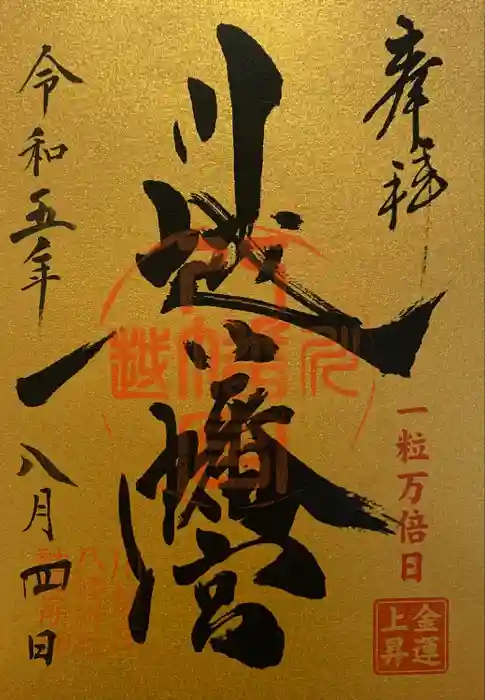 奉拝
一粒万倍日
金運
上昇
川越八幡宮
令和五年
八月四日